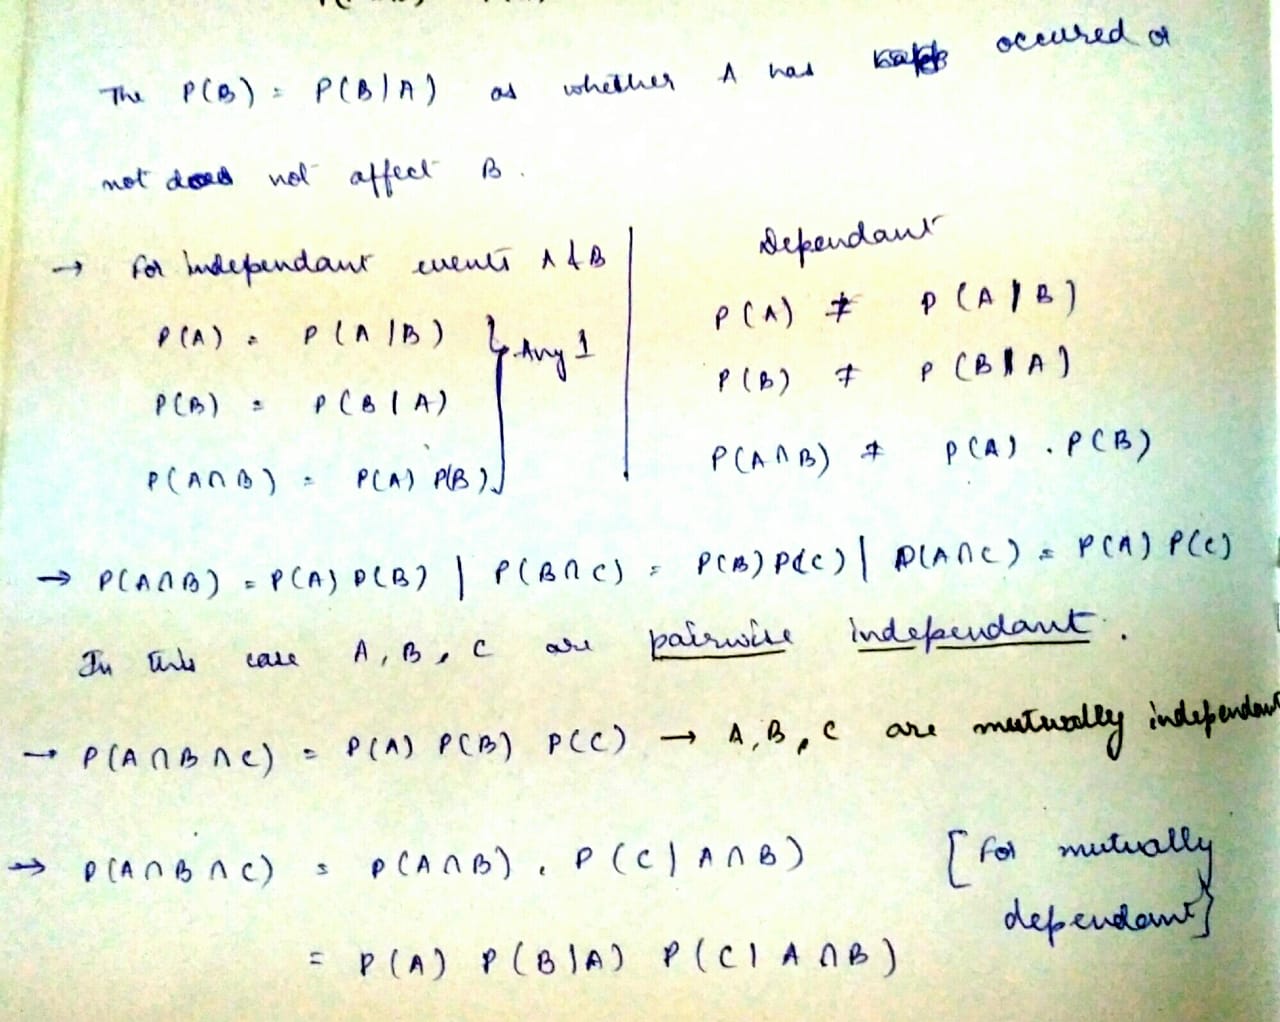 The P(B) = P(B|A) as whether A has occured or
not does not affect B.
→ For independant events A & B
P(A) = P(A|B)
P(B) = P(B|A)
P(A∩B) = P(A) P(B)
} Any 1
Dependant
P(A) ≠ P(A|B)
P(B) ≠ P(B|A)
P(A∩B) ≠ P(A) . P(B)
→ P(A∩B) = P(A) P(B) | P(B∩C) = P(B) P(C) | P(A∩C) = P(A) P(C)
In this case A, B, C are pairwise independant.
→ P(A∩B∩C) = P(A) P(B) P(C) → A, B, C are mutually independant
→ P(A∩B∩C) = P(A∩B) . P(C|A∩B) [For mutually
dependant]
= P(A) P(B|A) P(C|A∩B)